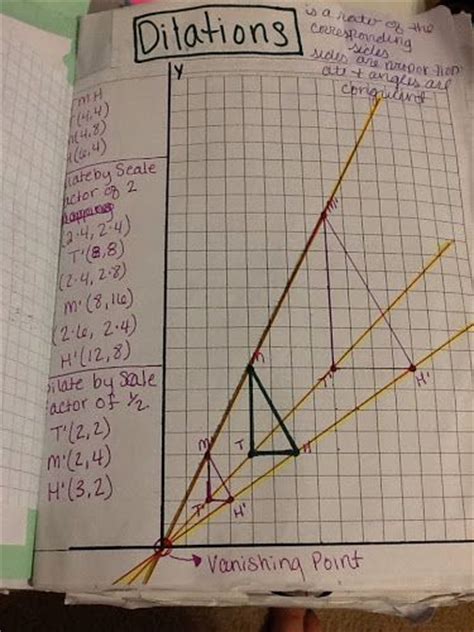 Dilations
is a ratio of the
corresponding
sides
sides are proportion
ate & angles are
congruent
Y
TMH
T(4,4)
M(4,8)
H(6,4)
by Scale
factor of 2
(2·4, 2·4)
T'(8,8)
(2·4, 2·8)
M'(8,16)
(2·6, 2·4)
H'(12,8)
Dilate by Scale
factor of ½
T'(2,2)
M'(2,4)
H'(3,2)
M'
T'
H'
M
T
H
M'
T'
H'
Vanishing Point